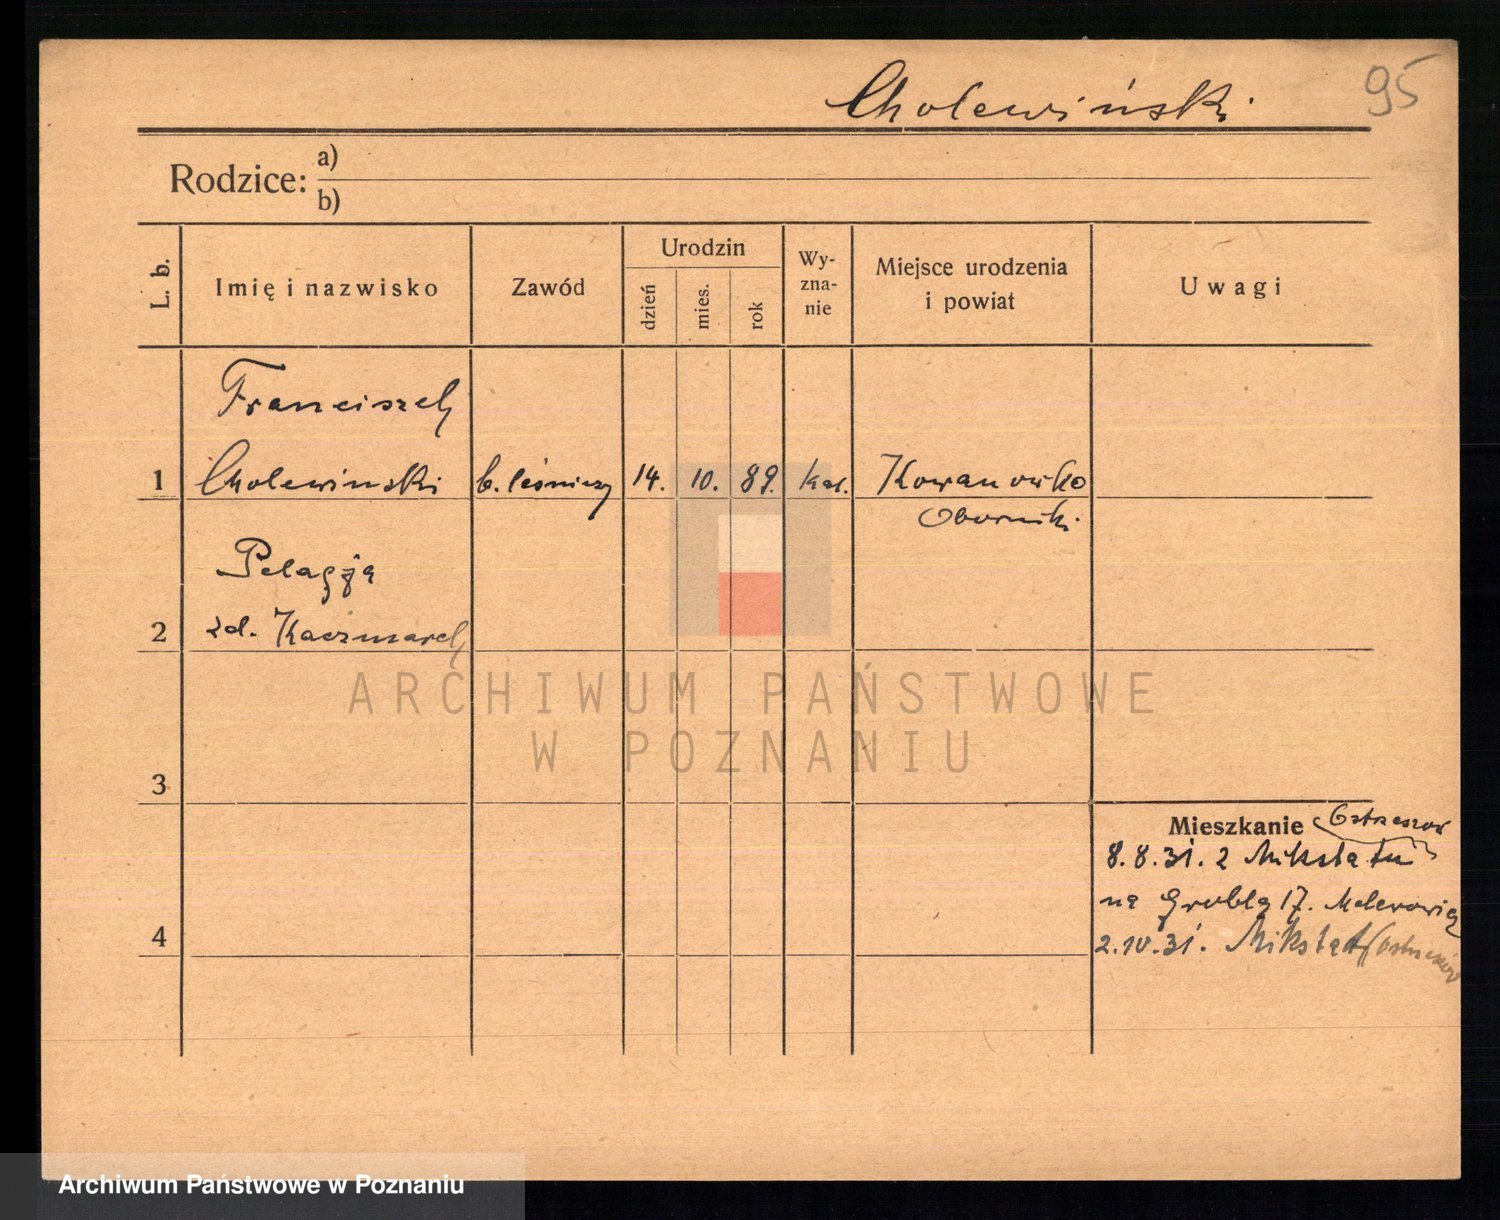 Cholewiński 95
Rodzice: a)
b)
L. b.
Imię i nazwisko
Zawód
Urodzin
dzień
mies.
rok
Wy-
zna-
nie
Miejsce urodzenia
i powiat
Uwagi
Franciszek
1 Cholewinski b. leśniczy 14. 10. 89. kat. Kowanówko
Oborniki
Pelagja
2 zd. Kaczmarek
ARCHIWUM PAŃSTWOWE
W POZNANIU
3
Mieszkanie Ostrzeszów
8.8.31. z Mikstatu
na Groblą 17.
4
2.10.31. Mikstat
Archiwum Państwowe w Poznaniu